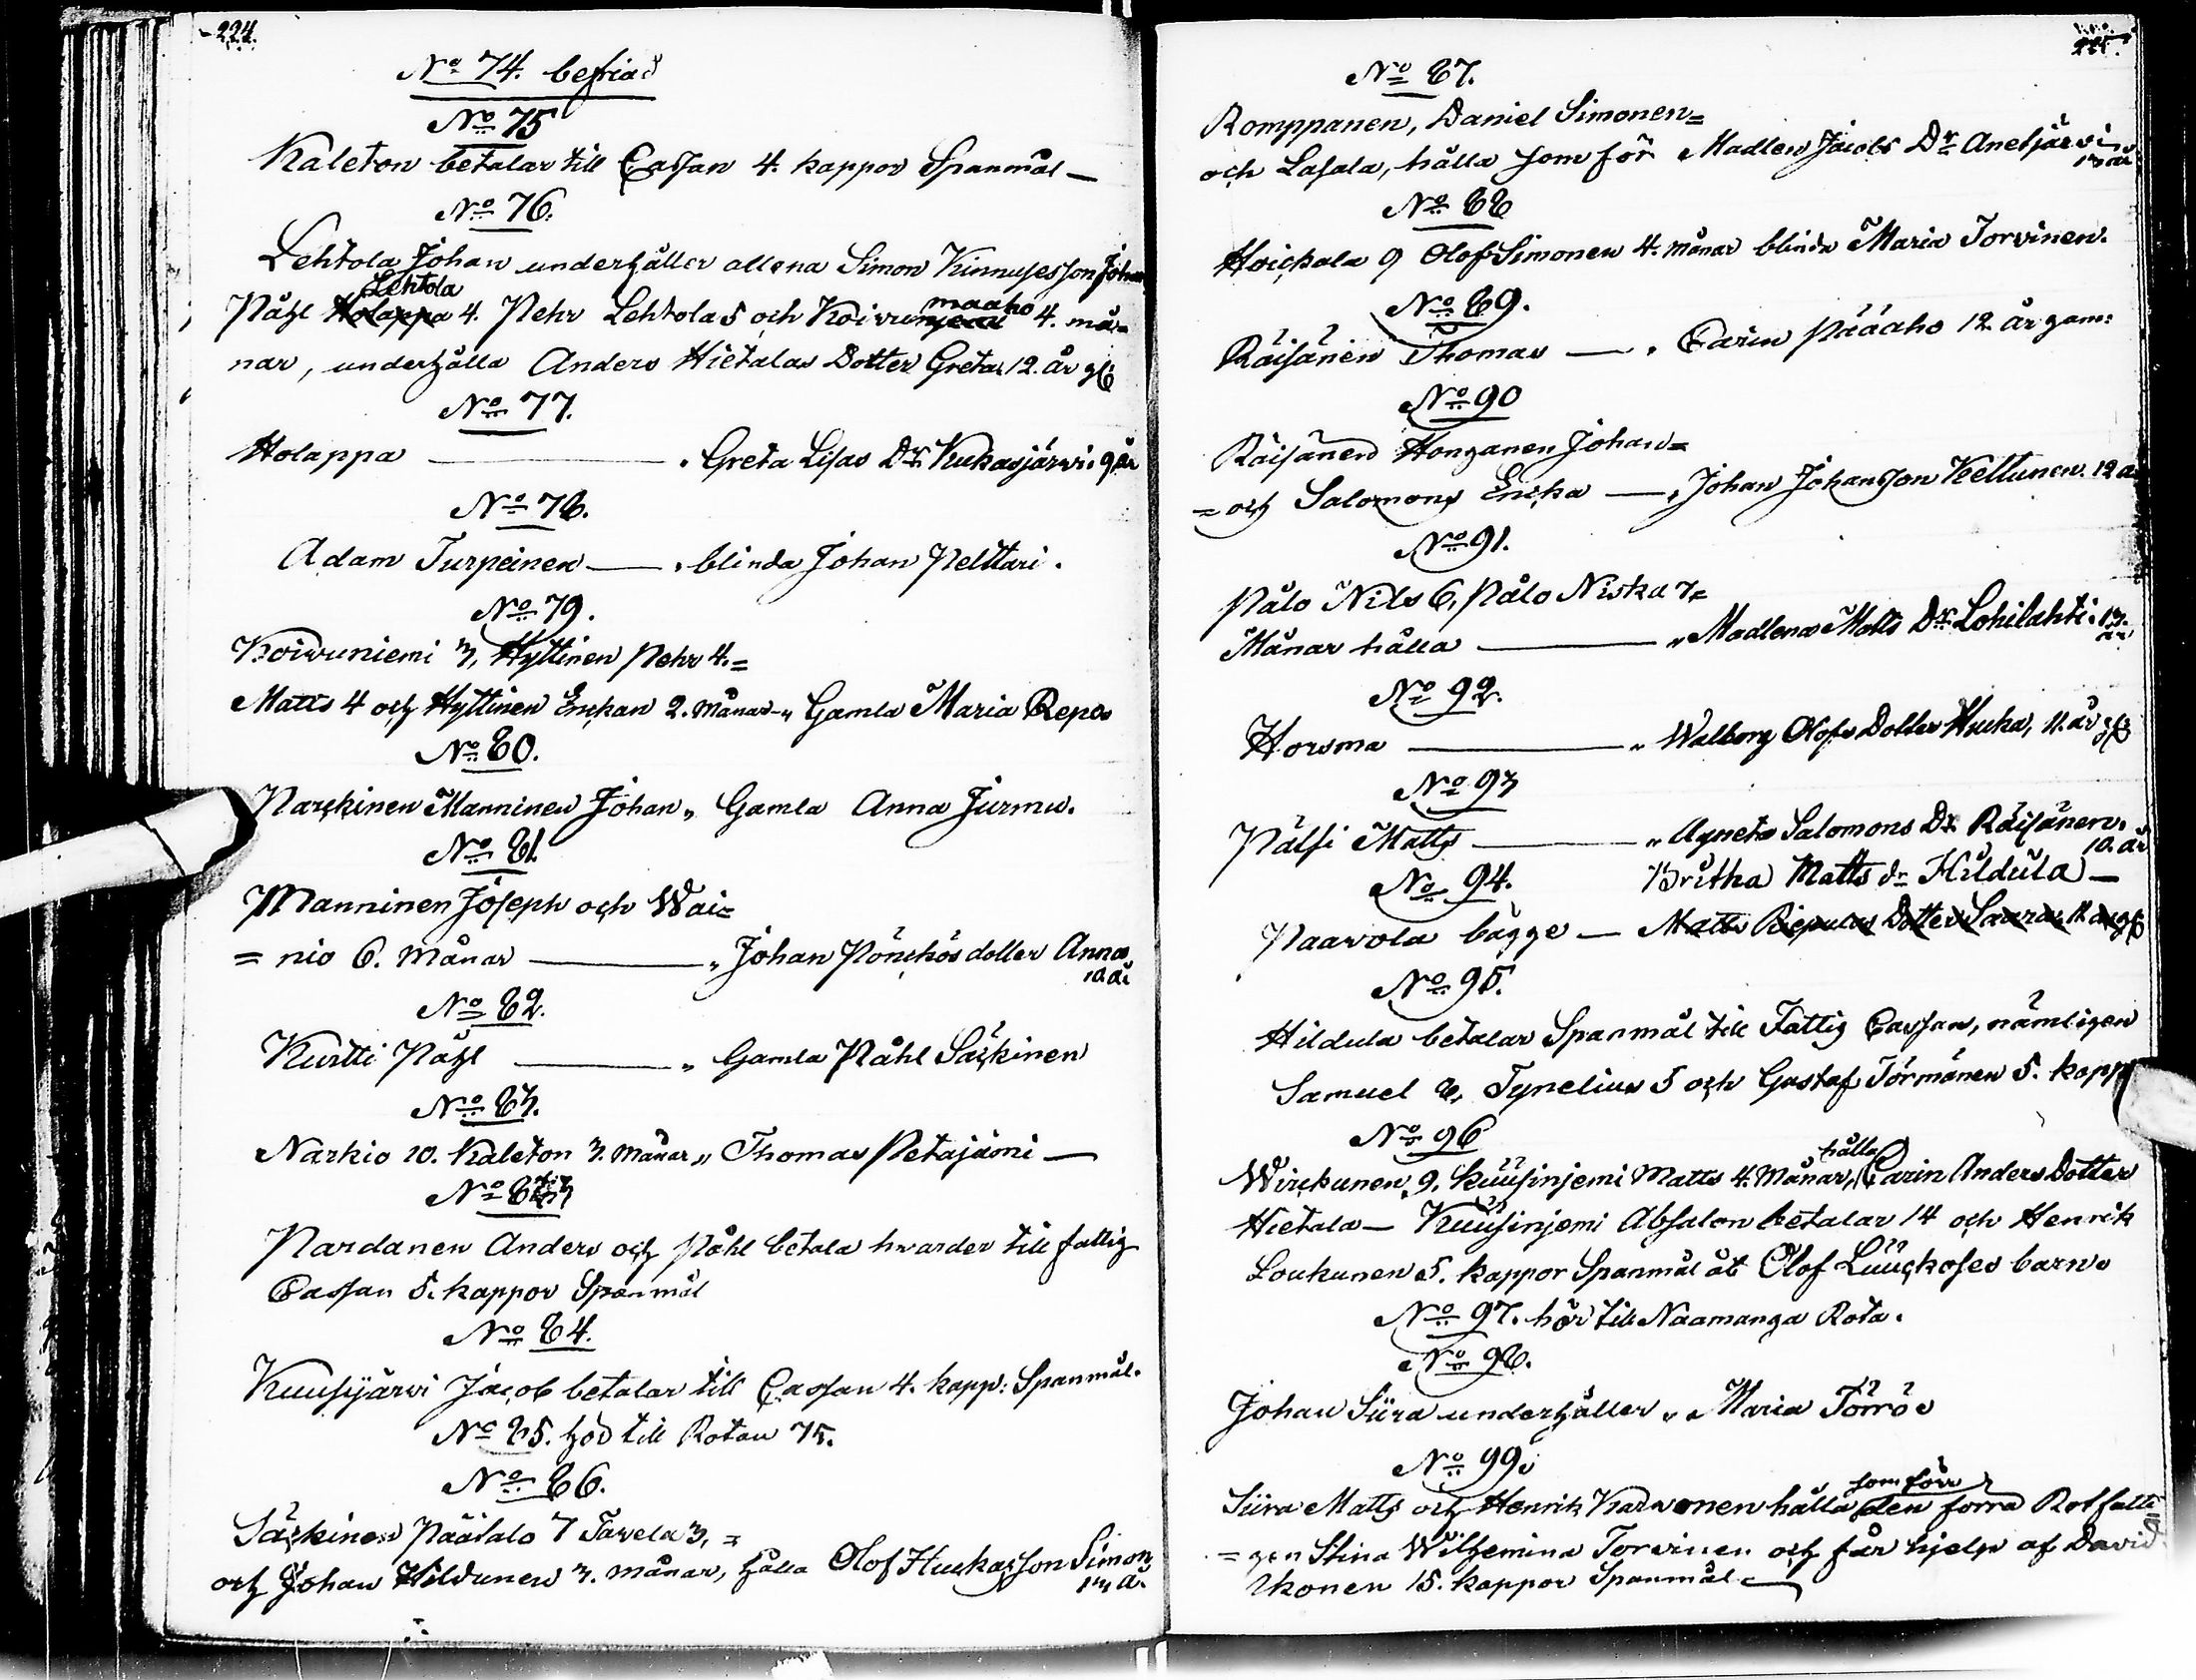 224.
No 74. befriad
No 75
Kaleton betalar till Cassan 4. kappor Spanmål —
No 76.
Lehtola Johan underhåller allena Simon Kinnuses son Johan
Påhl Lehtola 4. Pehr Lehtola 5 och Koivumaaho 4. må-
nar, underhålla Anders Hietalas Dotter Greta 12. år gl
No 77.
Holappa — „ Greta Lisas Dr Kukasjärvi. 9 år
No 78.
Adam Turpeinen — „ blinda Johan Pelttari.
No 79.
Koivuniemi 3, Hyttinen Pehr 4. =
Matts 4 och Hyttinen Enkan 2. Månar „ Gamla Maria Repo
No 80.
Parkinen Manninen Johan „ Gamla Anna Jurmu.
No 81.
Manninen Joseph och Wai=
= nio 6. Månar — „ Johan Pönkös dotter Anna
10. år
No 82.
Kurtti Påhl — „ Gamla Påhl Särkinen
No 83.
Narkio 10. Kaleton 3. Månar „ Thomas Petäjämi —
No 83
Pardanen Anders och Påhl betala hvarder till fattig
Cassan 5. kappor Spanmål
No 84.
Kuusijärvi Jacob betalar till Cassan 4. kapp: Spanmål.
No 85. hör till Rotan 75.
No 86.
Särkinen Päätalo 7 Tavela 3, =
och Johan Hildunen 3. månar, hålla Olof Huckas son Simon
13 år
225.
No 87.
Romppanen, Daniel Simonen=
och Lasala, hålla som för Madlen Jacobs Dr Anetjärvi
13 år
No 88
Hoickala 9 Olof Simonen 4. Månar blinda Maria Torvinen.
No 89.
Räisänen Thomas — „ Carin Pääaho 12 år gam:
No 90
Räisänen Honganen Johan=
= och Salomons Encka — „ Johan Johansson Keltunen. 12 år
No 91.
Pålo Nils 6, Pålo Niska 7=
Månar hålla — „ Madlena Matts Dr Lohilahti. 13.
år
No 92.
Horsma — „ Walborg Olofs Dotter Hucka, 11. år gl
No 93
Pälsi Matts — „ Agneta Salomons Dr Räisänen.
10. år
No 94.
Britha Matts dr Hildula —
Paavola bägge — Matts Riepulas Dotter Saara 11 år gl
No 95.
Hildula betalar Spanmål till Fattig Cassan, nämligen
Samuel 8, Tynelius 5 och Gustaf Törmänen 5. kapp
No 96
Wirckunen 9. Kuusinjemi Matts 4. Månar, hålla Carin Anders Dotter
Hietala — Kuusinjemi Absalon betalar 14 och Henrik
Loukunen 5. kappor Spanmål åt Olof Luuckoses barn
No 97. hör till Naamanga Rota.
No 98.
Johan Siira underhåller „ Maria Törrö
No 99.
Siira Matts och Henrik Karvonen hålla som förr den förra Rotfatti
= gen Stina Wilhemina Torvinen och får hjelp af David
Ikonen 15. kappor Spanmål —